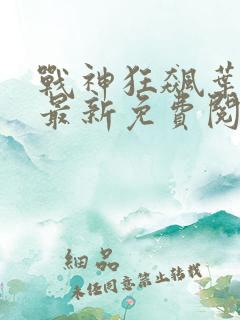 戰神狂飆葉
最新免費閱
細品
未任同意禁止轉載